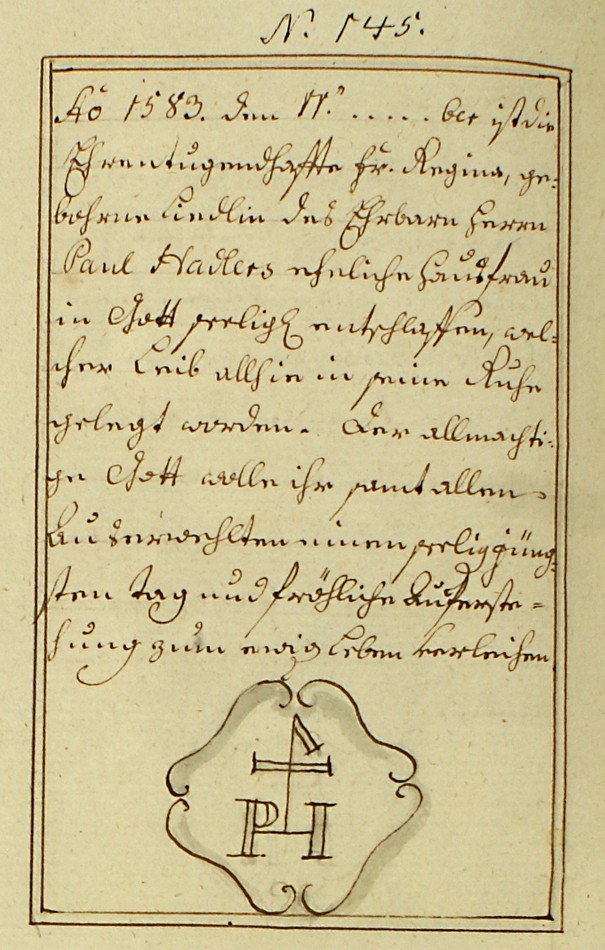 N. 145.
Aõ 1583. den 11.ᵗ . . . . . ber ist die
Ehrentugendhaffte Fr. Regina, ge-
bohrne Liedlin des Ehrbarn Herrn
Paul Hadlers eheliche Haußfrau
in Gott seelig entschlaffen, wel-
cher Leib allhie in seine Ruhe
gelegt worden. Der allmächti-
ge Gott wolle ihr samt allen
Auserwehlten einen seelig jüng-
sten tag und fröhliche Auferste-
hung zum ewig Leben verleihen
PH